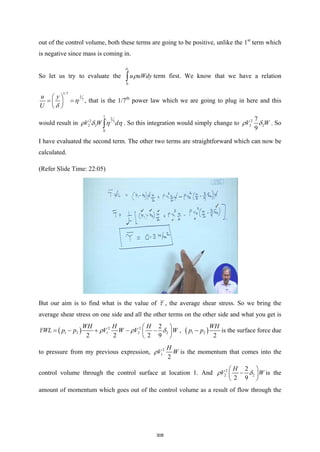 out of the control volume, both these terms are going to be positive, unlike the 1st term which
is negative since mass is coming in.
So let us try to evaluate the ∫₀^δ₂ uρuWdy term first. We know that we have a relation
u/U = (y/δ)^1/7 = η^1/7, that is the 1/7th power law which we are going to plug in here and this
would result in ρV₂²δ₂W∫₀¹ η^2/7 dη. So this integration would simply change to ρV₂² 7/9 δ₂W. So
I have evaluated the second term. The other two terms are straightforward which can now be
calculated.
(Refer Slide Time: 22:05)
But our aim is to find what is the value of τ̄, the average shear stress. So we bring the
average shear stress on one side and all the other terms on the other side and what you get is
τ̄WL = (p₁ − p₂) WH/2 + ρV₁² H/2 W − ρV₂² (H/2 − 2/9 δ₂) W, (p₁ − p₂) WH/2 is the surface force due
to pressure from my previous expression, ρV₁² H/2 W is the momentum that comes into the
control volume through the control surface at location 1. And ρV₂² (H/2 − 2/9 δ₂) W is the
amount of momentum which goes out of the control volume as a result of flow through the
308